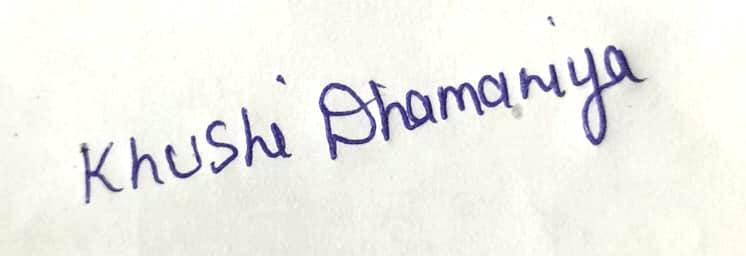 Khushi Dhamaniya